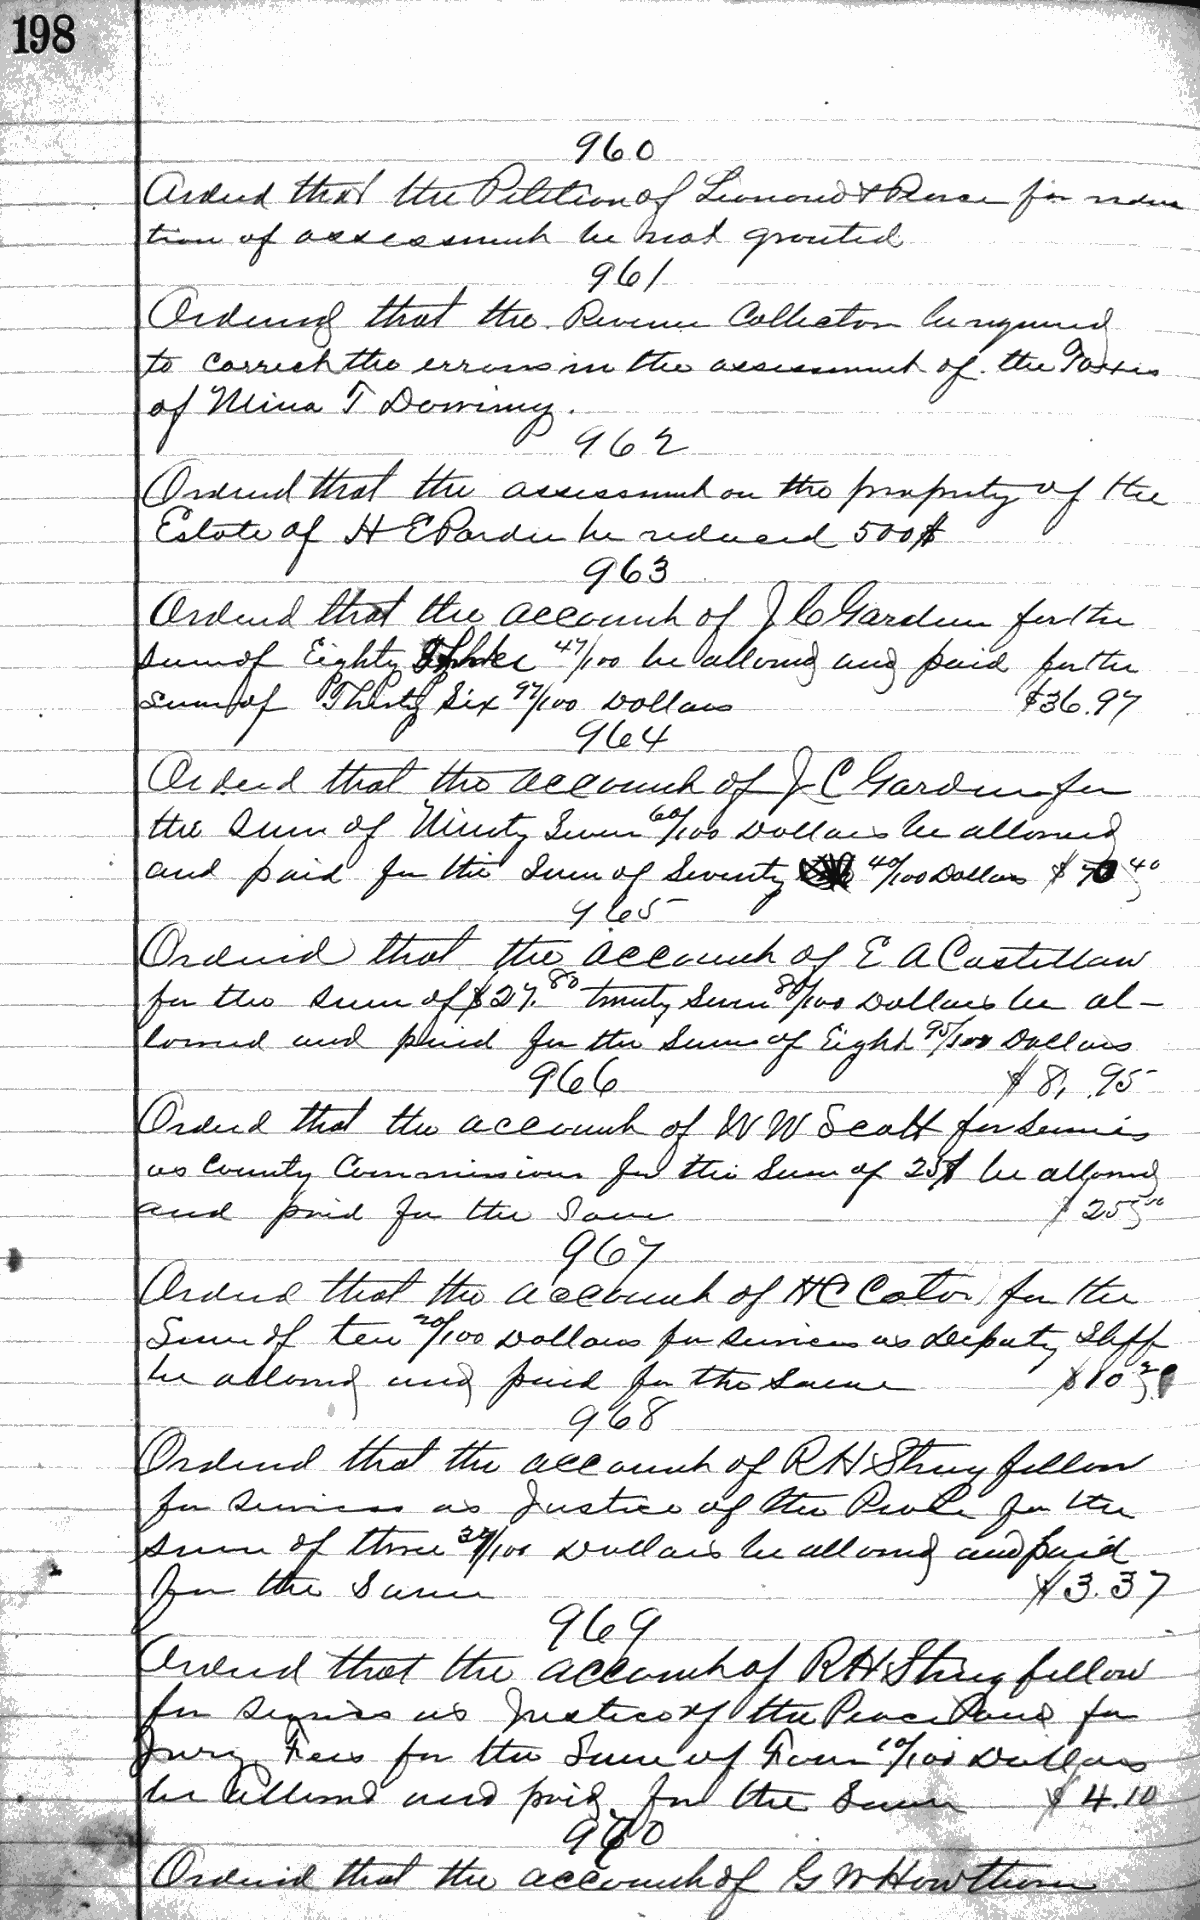 198
960
Ordered that the Petition of Leonard & Pearce for reduc
tion of assessment be not granted
961
Ordered that the Revenue Collector be required
to correct the errors in the assessment of the Taxes
of Mina T
962
Ordered that the assessment on the property of the
Estate of H E Pardee be reduced 500$
963
Ordered that the account of J C Garden for the
sum of Eighty Three 47/100 be allowed and paid for the
sum of Thirty Six 97/100 Dollars $36.97
964
Ordered that the account of J C Garden for
the Sum of Ninety Seven 60/100 Dollars be allowed
and paid for the Sum of Seventy 40/100 Dollars $70 40
965
Ordered that the account of E A Castellaw
for the sum of $27.80 twenty Seven 80/100 Dollars be al-
lowed and paid for the Sum of Eight 95/100 Dollars
966 $8, .95
Ordered that the account of W W Scott for Services
as County Commissioner for the Sum of 25$ be allowed
and paid for the Same $25 00
967
Ordered that the account of H C Cator for the
Sum of ten 20/100 Dollars for services as Deputy Shff
be allowed and paid for the Same $10 20
968
Ordered that the account of R H Stringfellow
for services as Justice of the Peace for the
sum of three 37/100 Dollars be allowed and paid
for the Same $3.37
969
Ordered that the account of R H Stringfellow
for services as Justice of the Peace Paid for
Jury Fees for the Sum of Four 10/100 Dollars
be allowed and paid for the Same $4.10
970
Ordered that the account of G W Howthorn